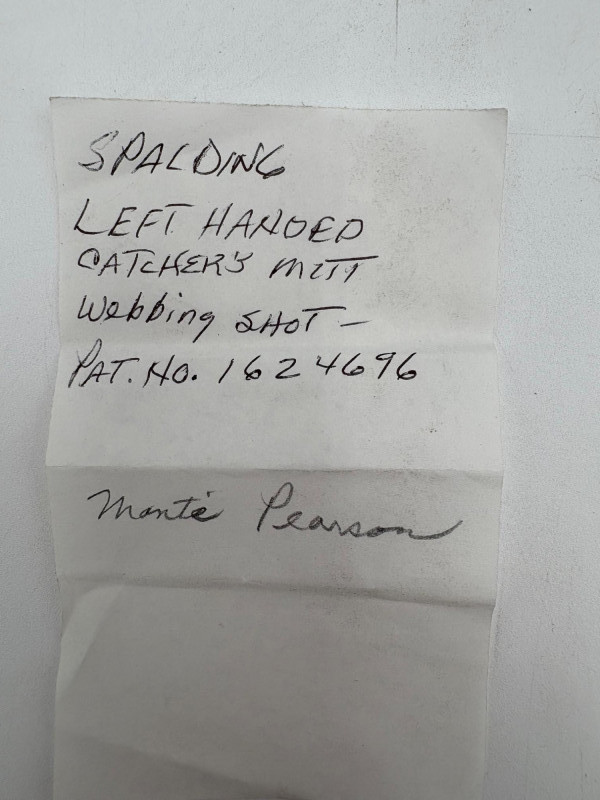 SPALDING
LEFT HANDED
CATCHER'S MITT
Webbing SHOT —
PAT. NO. 1624696
Monte Pearson